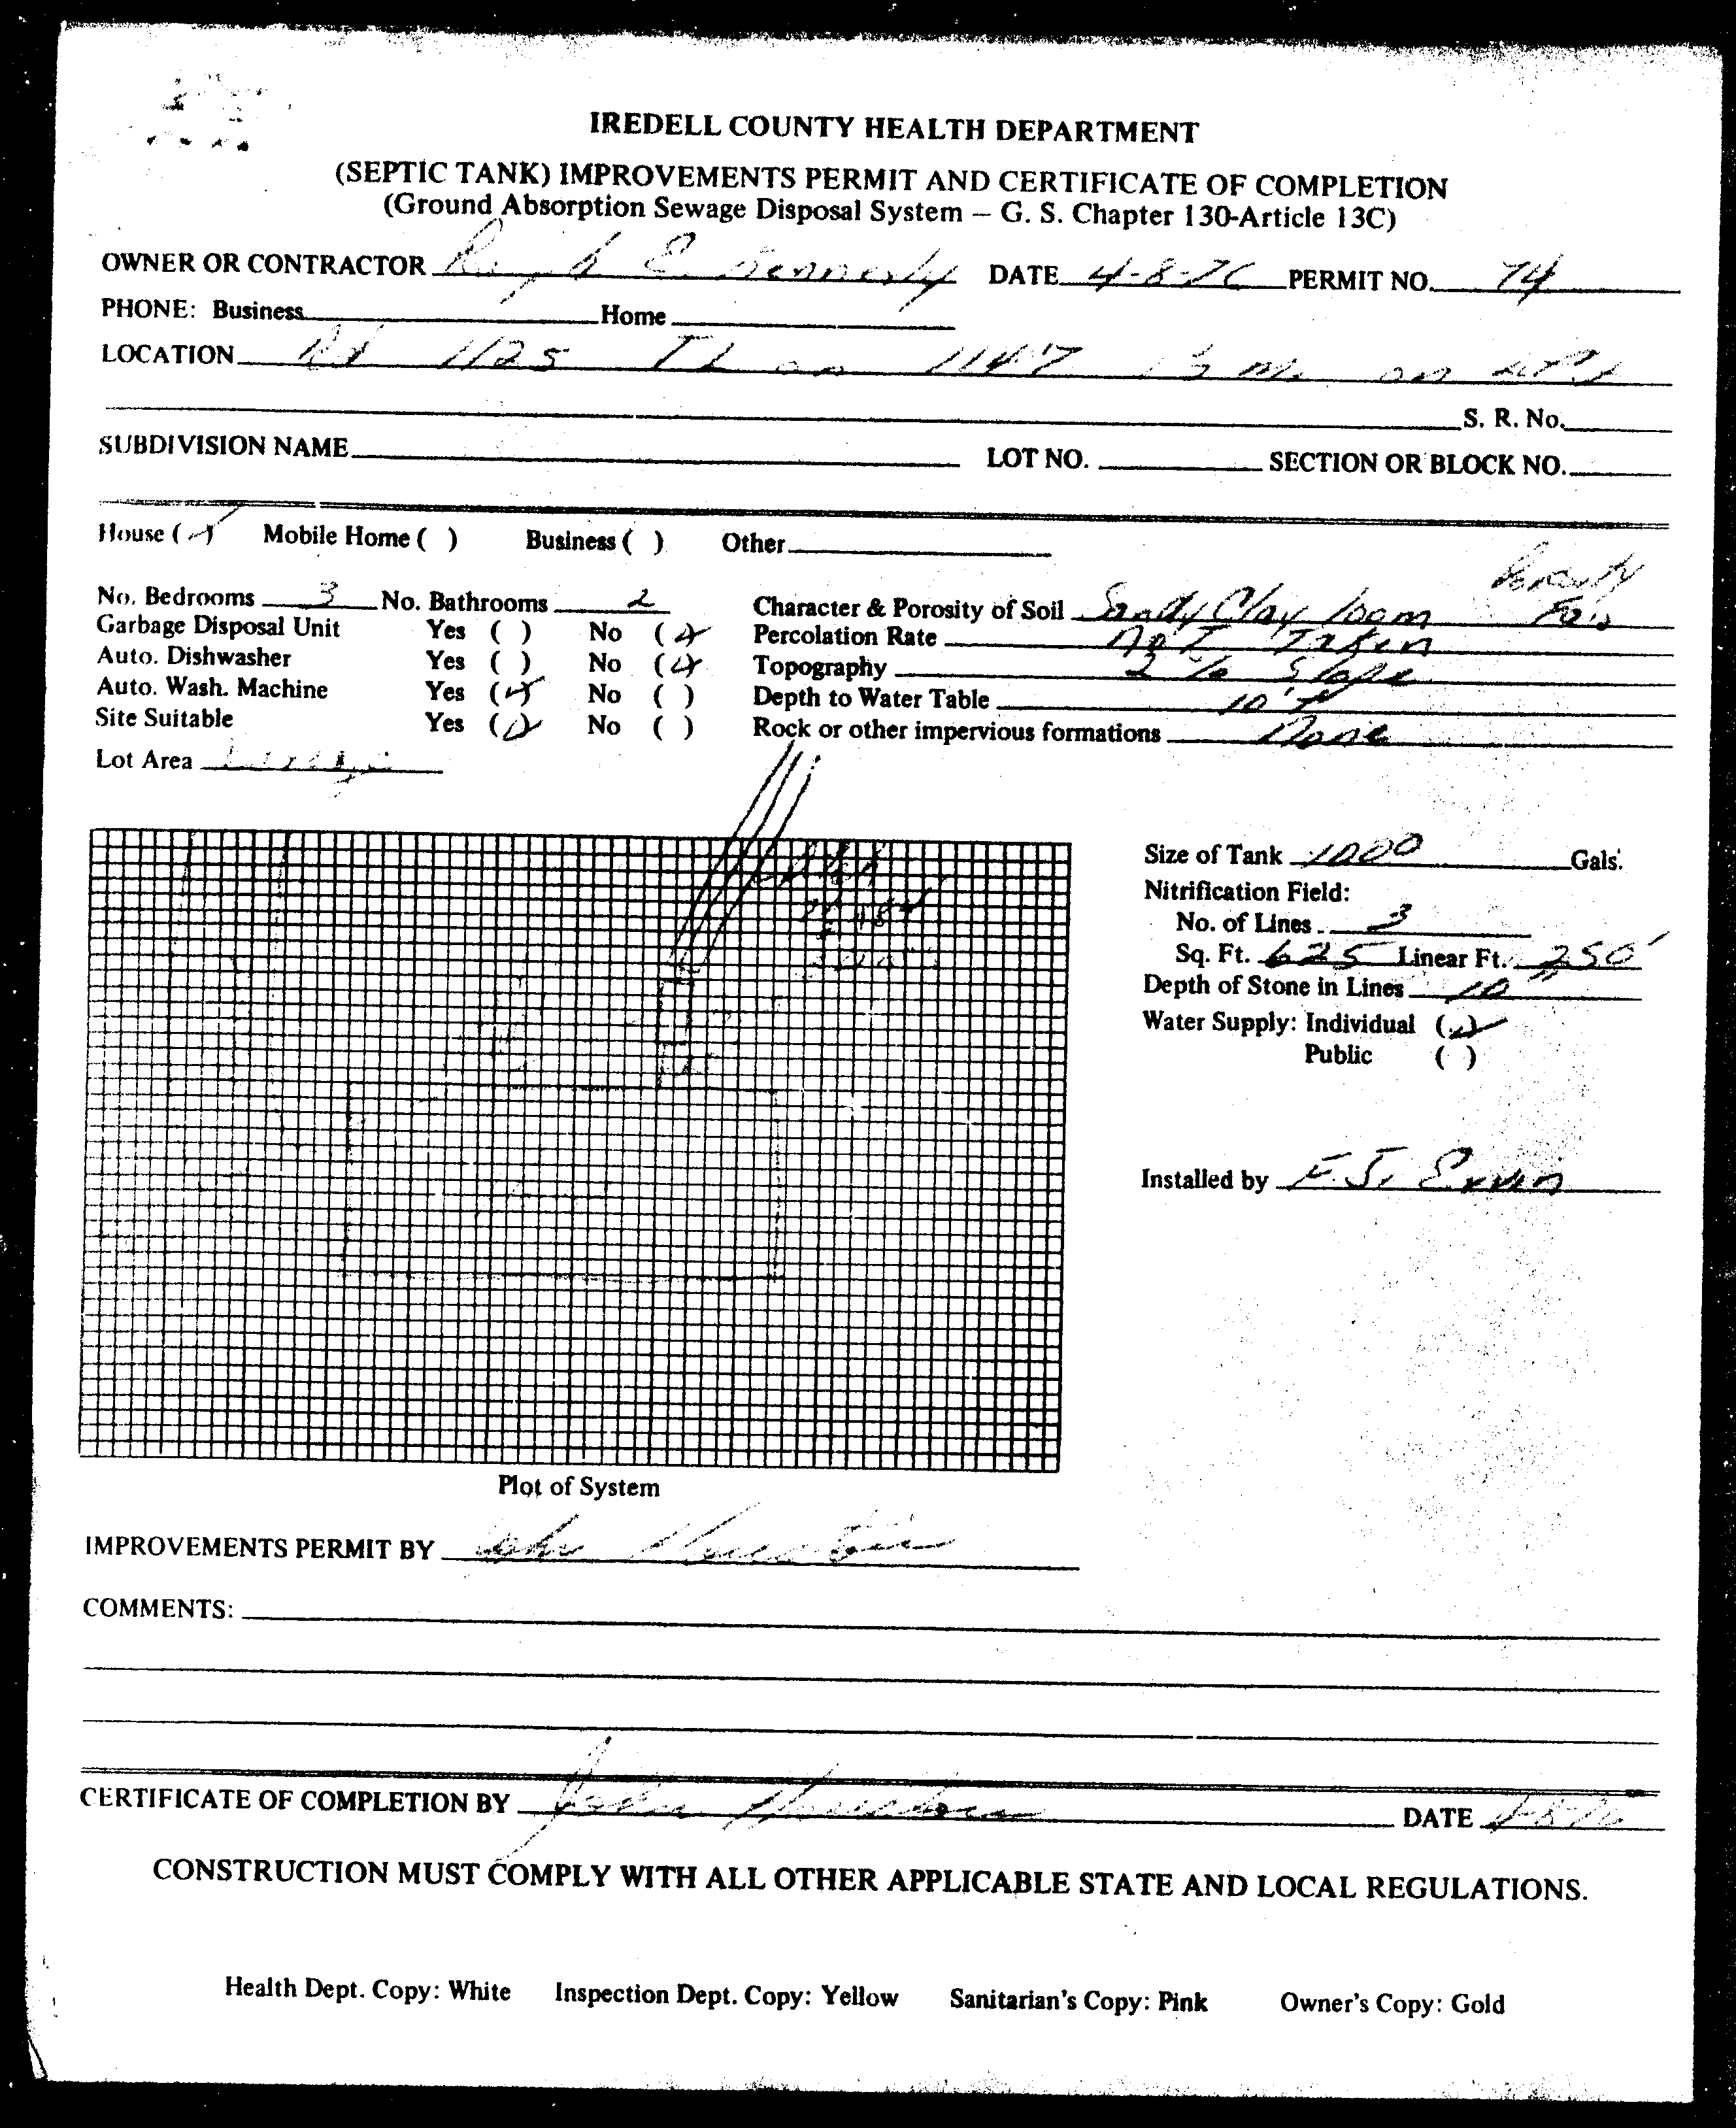 IREDELL COUNTY HEALTH DEPARTMENT
(SEPTIC TANK) IMPROVEMENTS PERMIT AND CERTIFICATE OF COMPLETION
(Ground Absorption Sewage Disposal System – G. S. Chapter 130-Article 13C)
OWNER OR CONTRACTOR E. DATE 4-8-76 PERMIT NO. 74
PHONE: Business Home
LOCATION 1125 TL on 1147 on
S. R. No.
SUBDIVISION NAME LOT NO. SECTION OR BLOCK NO.
House (✓) Mobile Home ( ) Business ( ) Other
Porosity
No. Bedrooms 3 No. Bathrooms 2 Character & Porosity of Soil Sandy Clay loam Fair
Garbage Disposal Unit Yes ( ) No (✓) Percolation Rate Not Taken
Auto. Dishwasher Yes ( ) No (✓) Topography 2 % Slope
Auto. Wash. Machine Yes (✓) No ( ) Depth to Water Table 10'+
Site Suitable Yes (✓) No ( ) Rock or other impervious formations None
Lot Area
Size of Tank 1000 Gals.
Nitrification Field:
No. of Lines 3
Sq. Ft. 625 Linear Ft. 250'
Depth of Stone in Lines 10"
Water Supply: Individual (✓)
Public ( )
Installed by F. J. Ervin
Plot of System
IMPROVEMENTS PERMIT BY John
COMMENTS:
CERTIFICATE OF COMPLETION BY John DATE 4-8-76
CONSTRUCTION MUST COMPLY WITH ALL OTHER APPLICABLE STATE AND LOCAL REGULATIONS.
Health Dept. Copy: White Inspection Dept. Copy: Yellow Sanitarian's Copy: Pink Owner's Copy: Gold